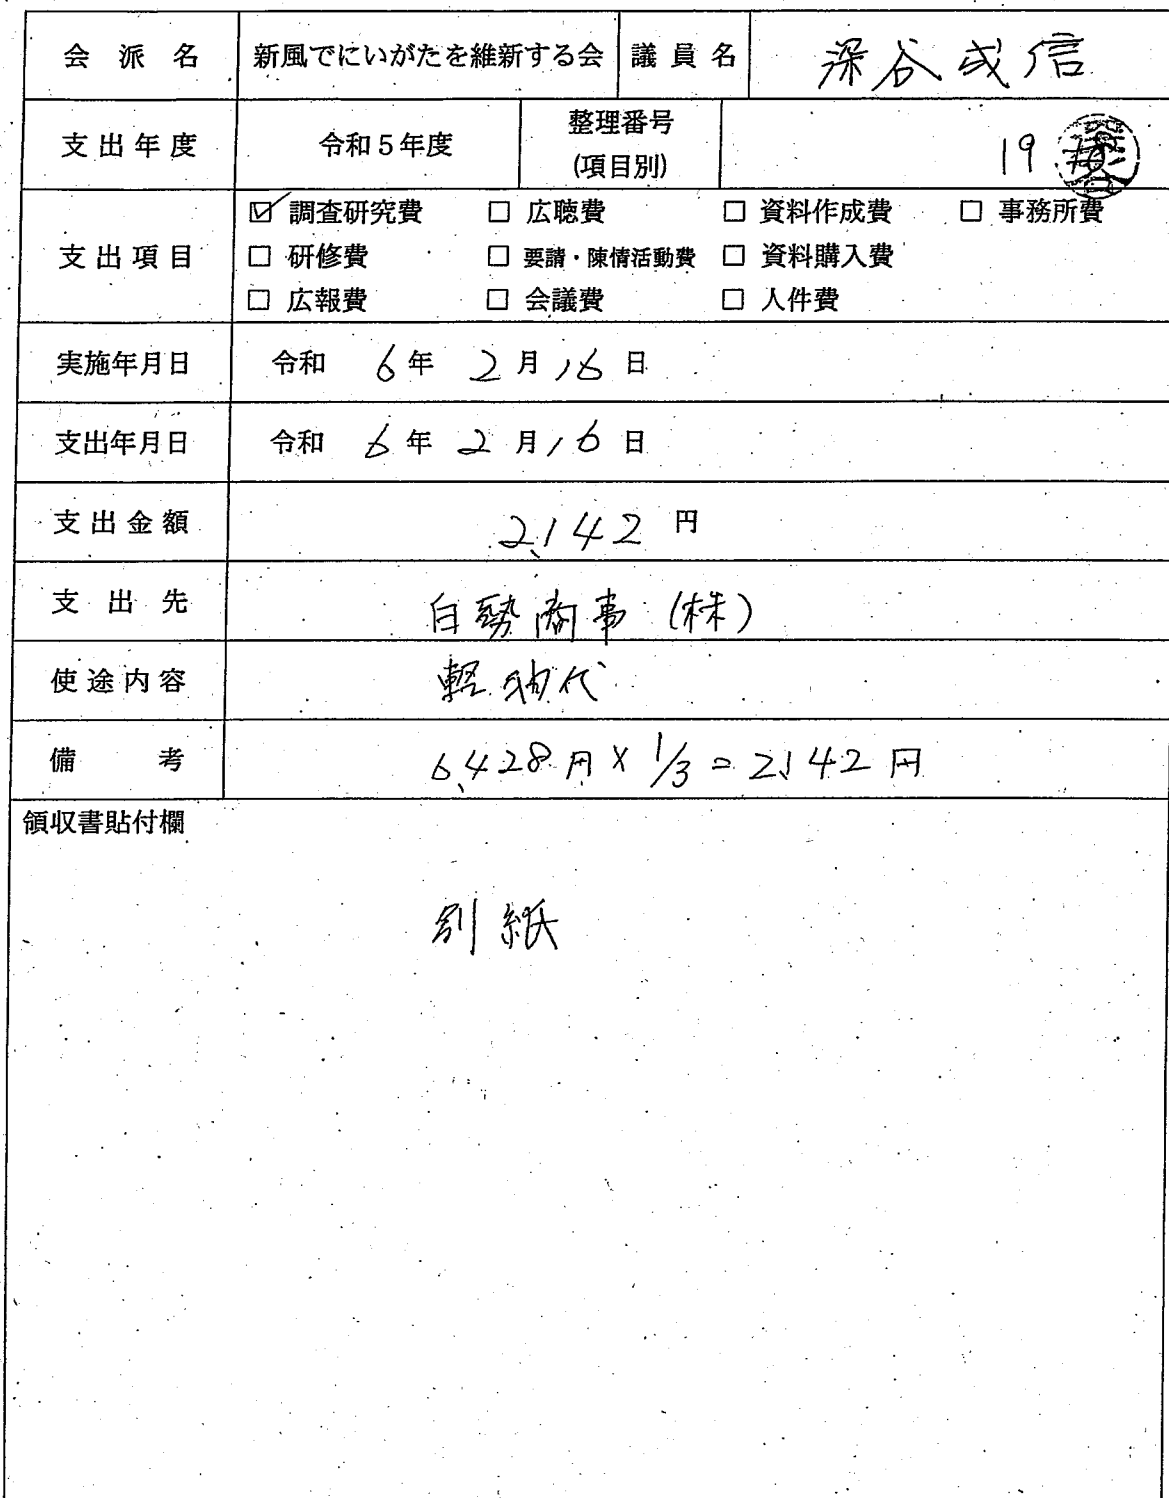 会派名 新風でにいがたを維新する会 議員名 深谷成信
支出年度 令和5年度 整理番号(項目別) 19
支出項目 ☑ 調査研究費 □ 広聴費 □ 資料作成費 □ 事務所費
□ 研修費 □ 要請・陳情活動費 □ 資料購入費
□ 広報費 □ 会議費 □ 人件費
実施年月日 令和 6年 2月16日
支出年月日 令和 6年 2月16日
支出金額 2,142 円
支出先 白勢商事(株)
使途内容 軽油代
備考 6,428円×1/3=2,142円
領収書貼付欄
別紙